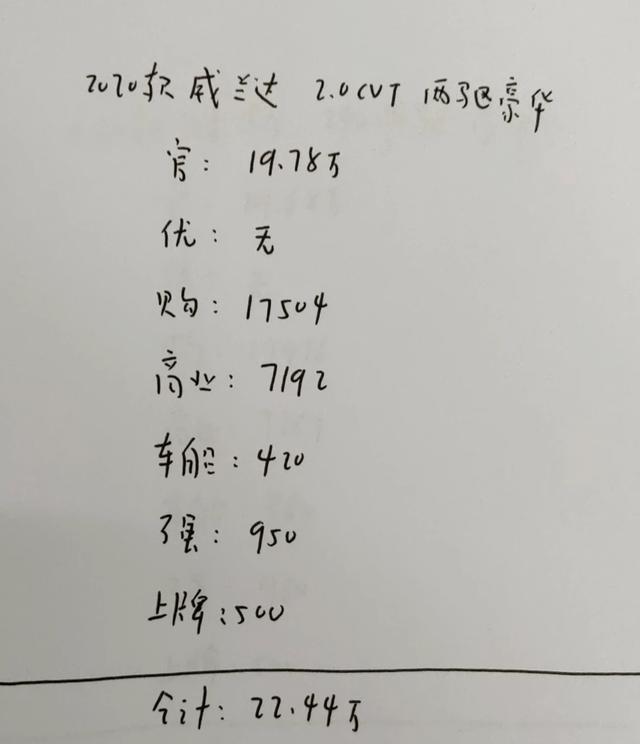 2020款威兰达 2.0CVT 两驱豪华
官: 19.78万
优: 无
购: 17504
商业: 7192
车船: 420
了强: 950
上牌: 500
合计: 22.44万